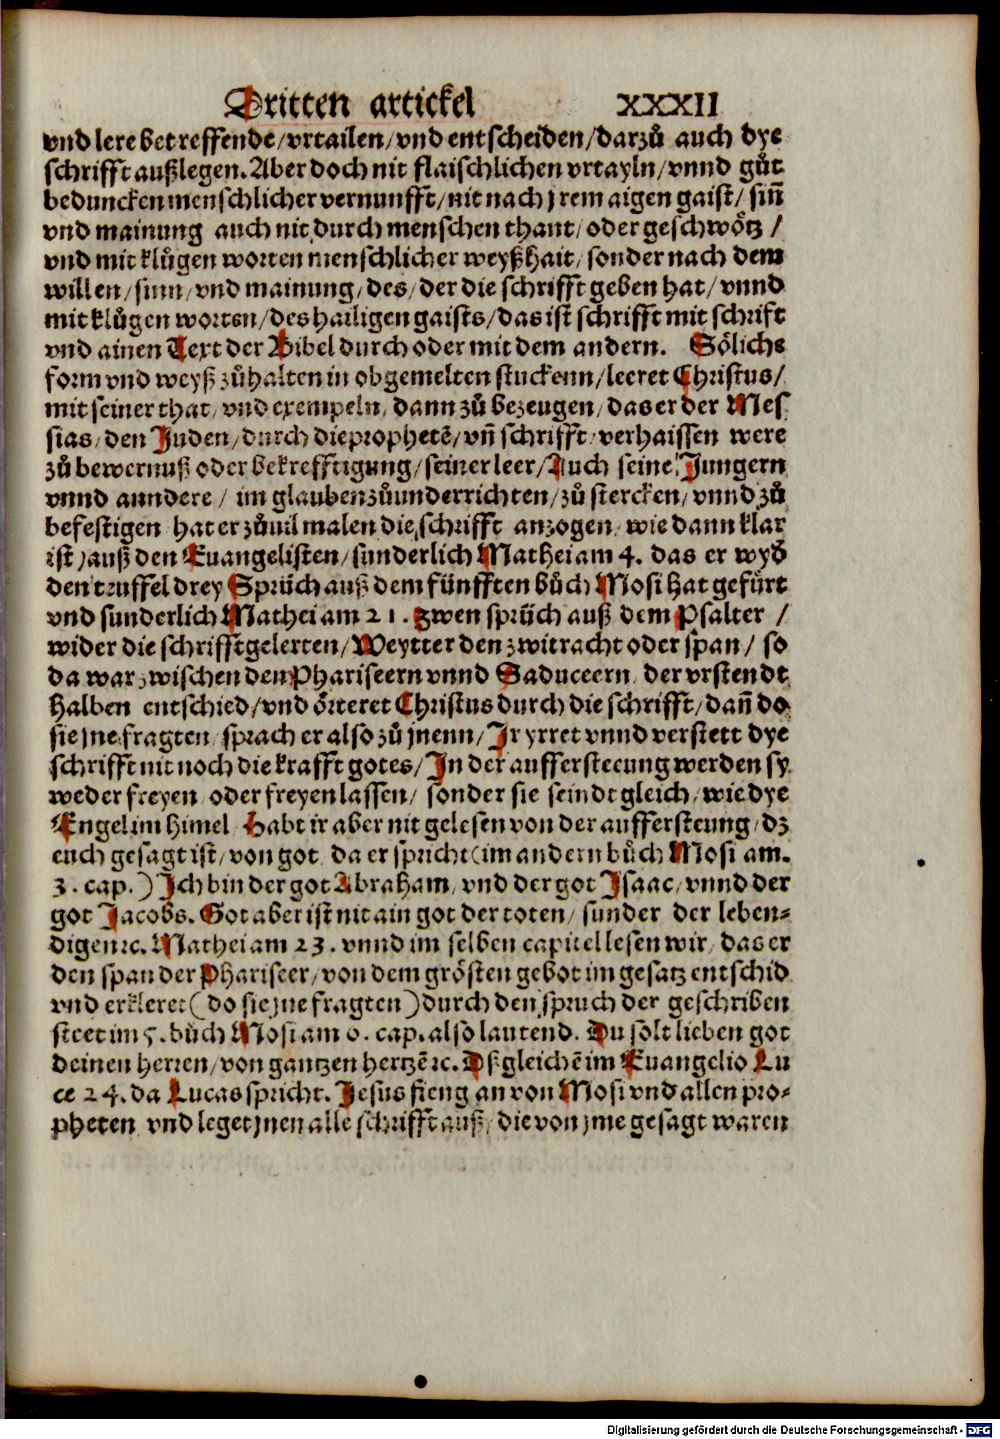 Dritten artickel XXXII
vnd lere betreffende/vrtailen/vnd entscheiden/darzů auch dye
schrifft außlegen. Aber doch nit flaischlichen vrtayln/vnnd gůt
beduncken menschlicher vernunfft/nit nach jrem aigen gaist/ siñ
vnd mainung auch nit durch menschen thant/oder geschwötz /
vnd mit klůgen worten menschlicher weyßhait/ sonder nach dem
willen/sinn/vnd mainung/des/der die schrifft geben hat/vnnd
mit klůgen worten/des hailigen gaists/das ist schrifft mit schrift
vnd ainen Text der Bibel durch oder mit dem andern. Sölichs
form vnd weyß zůhalten in obgemelten stuckenn/leeret Christus/
mit seiner that/vnd exempeln/dann zů bezeugen/das er der Mes
sias/den Juden/durch die prophetē/vñ schrifft/verhaissen were
zů bewernuß oder bekrefftigung/seiner leer/Auch seine Jungern
vnnd anndere/ im glauben zůunderrichten/zů stercken/vnnd zů
befestigen hat er zůuil malen die schrifft anzogen/wie dann klar
ist/auß den Euangelisten/sunderlich Mathei am 4. das er wyð
den teuffel drey Sprüch auß dem fünfften bůch Mosi hat gefürt
vnd sunderlich Mathei am 21. zwen sprüch auß dem Psalter /
wider die schrifftgelerten/Weytter den zwitracht oder span/ so
da war zwischen den Phariseern vnnd Saduceern/der vrstendt
halben entschied/vnd örteret Christus durch die schrifft/dañ do
sie jne fragten/sprach er also zů jnenn/Jr yrret vnnd verstett dye
schrifft nit noch die krafft gotes/Jn der aufferstecung werden sy
weder freyen oder freyen lassen/ sonder sie seindt gleich/wie dye
Engel im himel/Habt ir aber nit gelesen von der auffersteung/dz
euch gesagt ist/von got/da er spricht(im andern bůch Mosi am.
3. cap.)Jch bin der got Abraham/vnd der got Jsaac/vnnd der
got Jacobs. Got aber ist nit ain got der toten/sunder der leben-
digen ꝛc. Mathei am 23. vnnd im selben capitel lesen wir/das er
den span der Phariseer/von dem grösten gebot im gesatz entschid
vnd erkleret(do sie jne fragten)durch den spruch der geschriben
steet im 5. bůch Mosi am 6. cap. also lautend. Du solt lieben got
deinen herren/von gantzen hertzē ꝛc. Dßgleichē im Euangelio Lu
ce 24. da Lucas spricht. Jesus fieng an von Mosi vnd allen pro-
pheten vnd leget jnen alle schrifft auß/die von jme gesagt waren
Digitalisierung gefördert durch die Deutsche Forschungsgemeinschaft - DFG